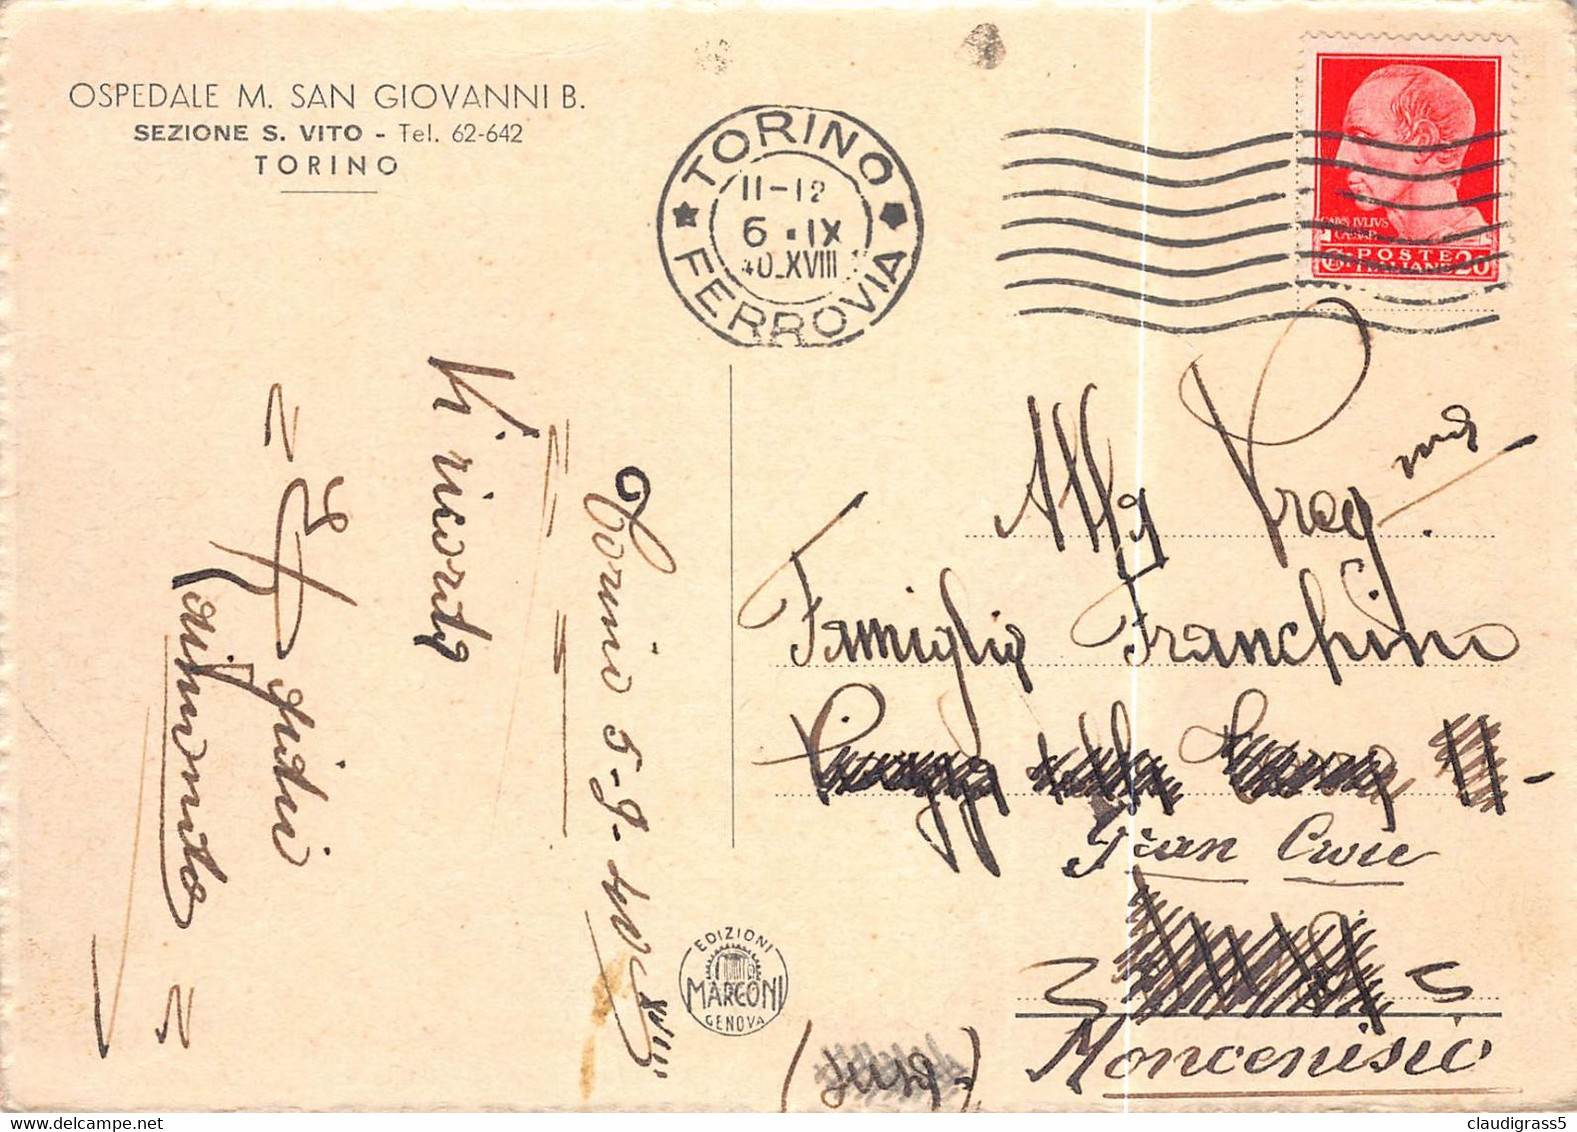 OSPEDALE M. SAN GIOVANNI B.
SEZIONE S. VITO - Tel. 62-642
TORINO
TORINO
11-12
6 . IX
40.XVIII
FERROVIA
CAIVS IVLIVS
CAESAR
POSTE
ITALIANE 20
Torino 5-9-40 XVIII
Vi ricorda
Guidi
Raimondo
All Preg ma
Famiglia Franchino
Piazza della
Gran Croce
Moncenisio
EDIZIONI
MARCONI
GENOVA
claudigrass5